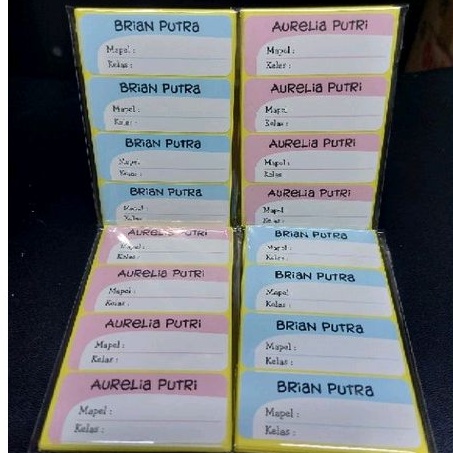 BRIAN PUTRA
Mapel :
Kelas :
BRIAN PUTRA
Mapel :
Kelas :
BRIAN PUTRA
Mapel
Kelas :
BRIAN PUTRA
Mapel :
Kelas
AURELIA PUTRI
Mapel :
Kelas :
AURELIA PUTRI
Mapel
Kelas :
AURELIA PUTRI
Mapel :
Kelas
AURELIA PUTRI
Mapel
Kelas :
AURELIA PUTRI
Mapel :
Kelas :
AURELIA PUTRI
Mapel :
Kelas :
AURELIA PUTRI
Mapel :
Kelas :
AURELIA PUTRI
Mapel :
Kelas :
BRIAN PUTRA
Mapel :
Kelas :
BRIAN PUTRA
Mapel
Kelas :
BRIAN PUTRA
Mapel :
Kelas :
BRIAN PUTRA
Mapel :
Kelas :